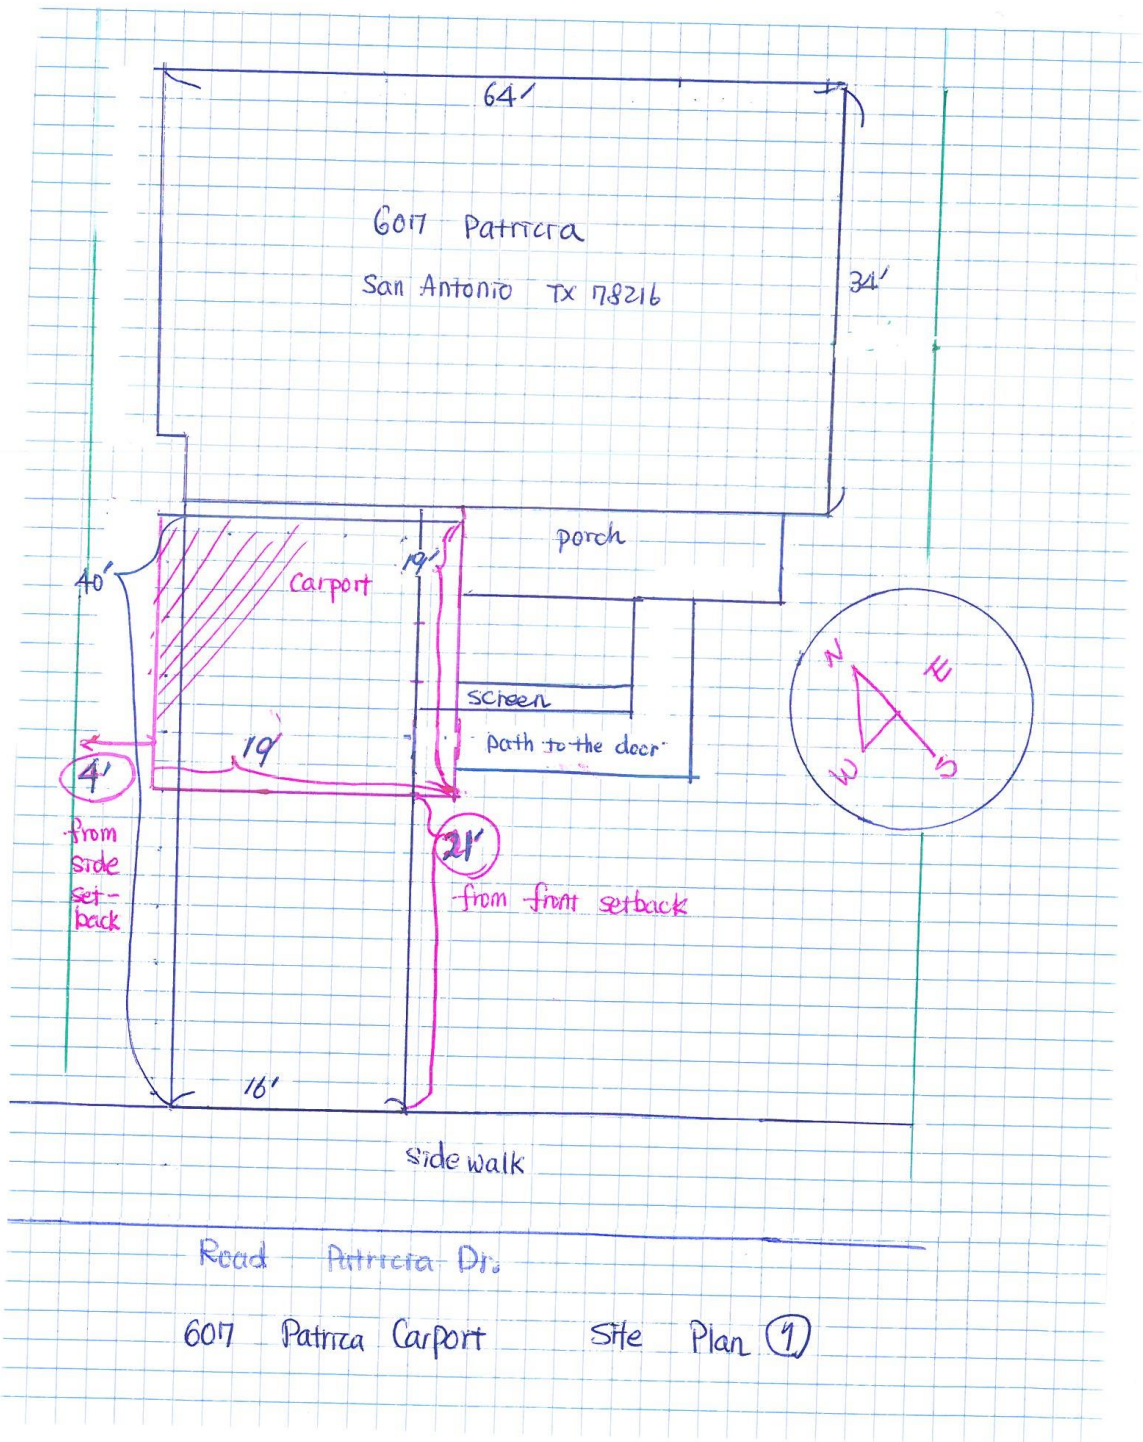 64'
607 Patricia
San Antonio TX 78216
34'
porch
19'
40'
Carport
N
E
W
S
screen
path to the door
19'
4'
from
side
set-
back
21'
from front setback
16'
sidewalk
Road Patricia Dr.
607 Patrica Carport Site Plan 1